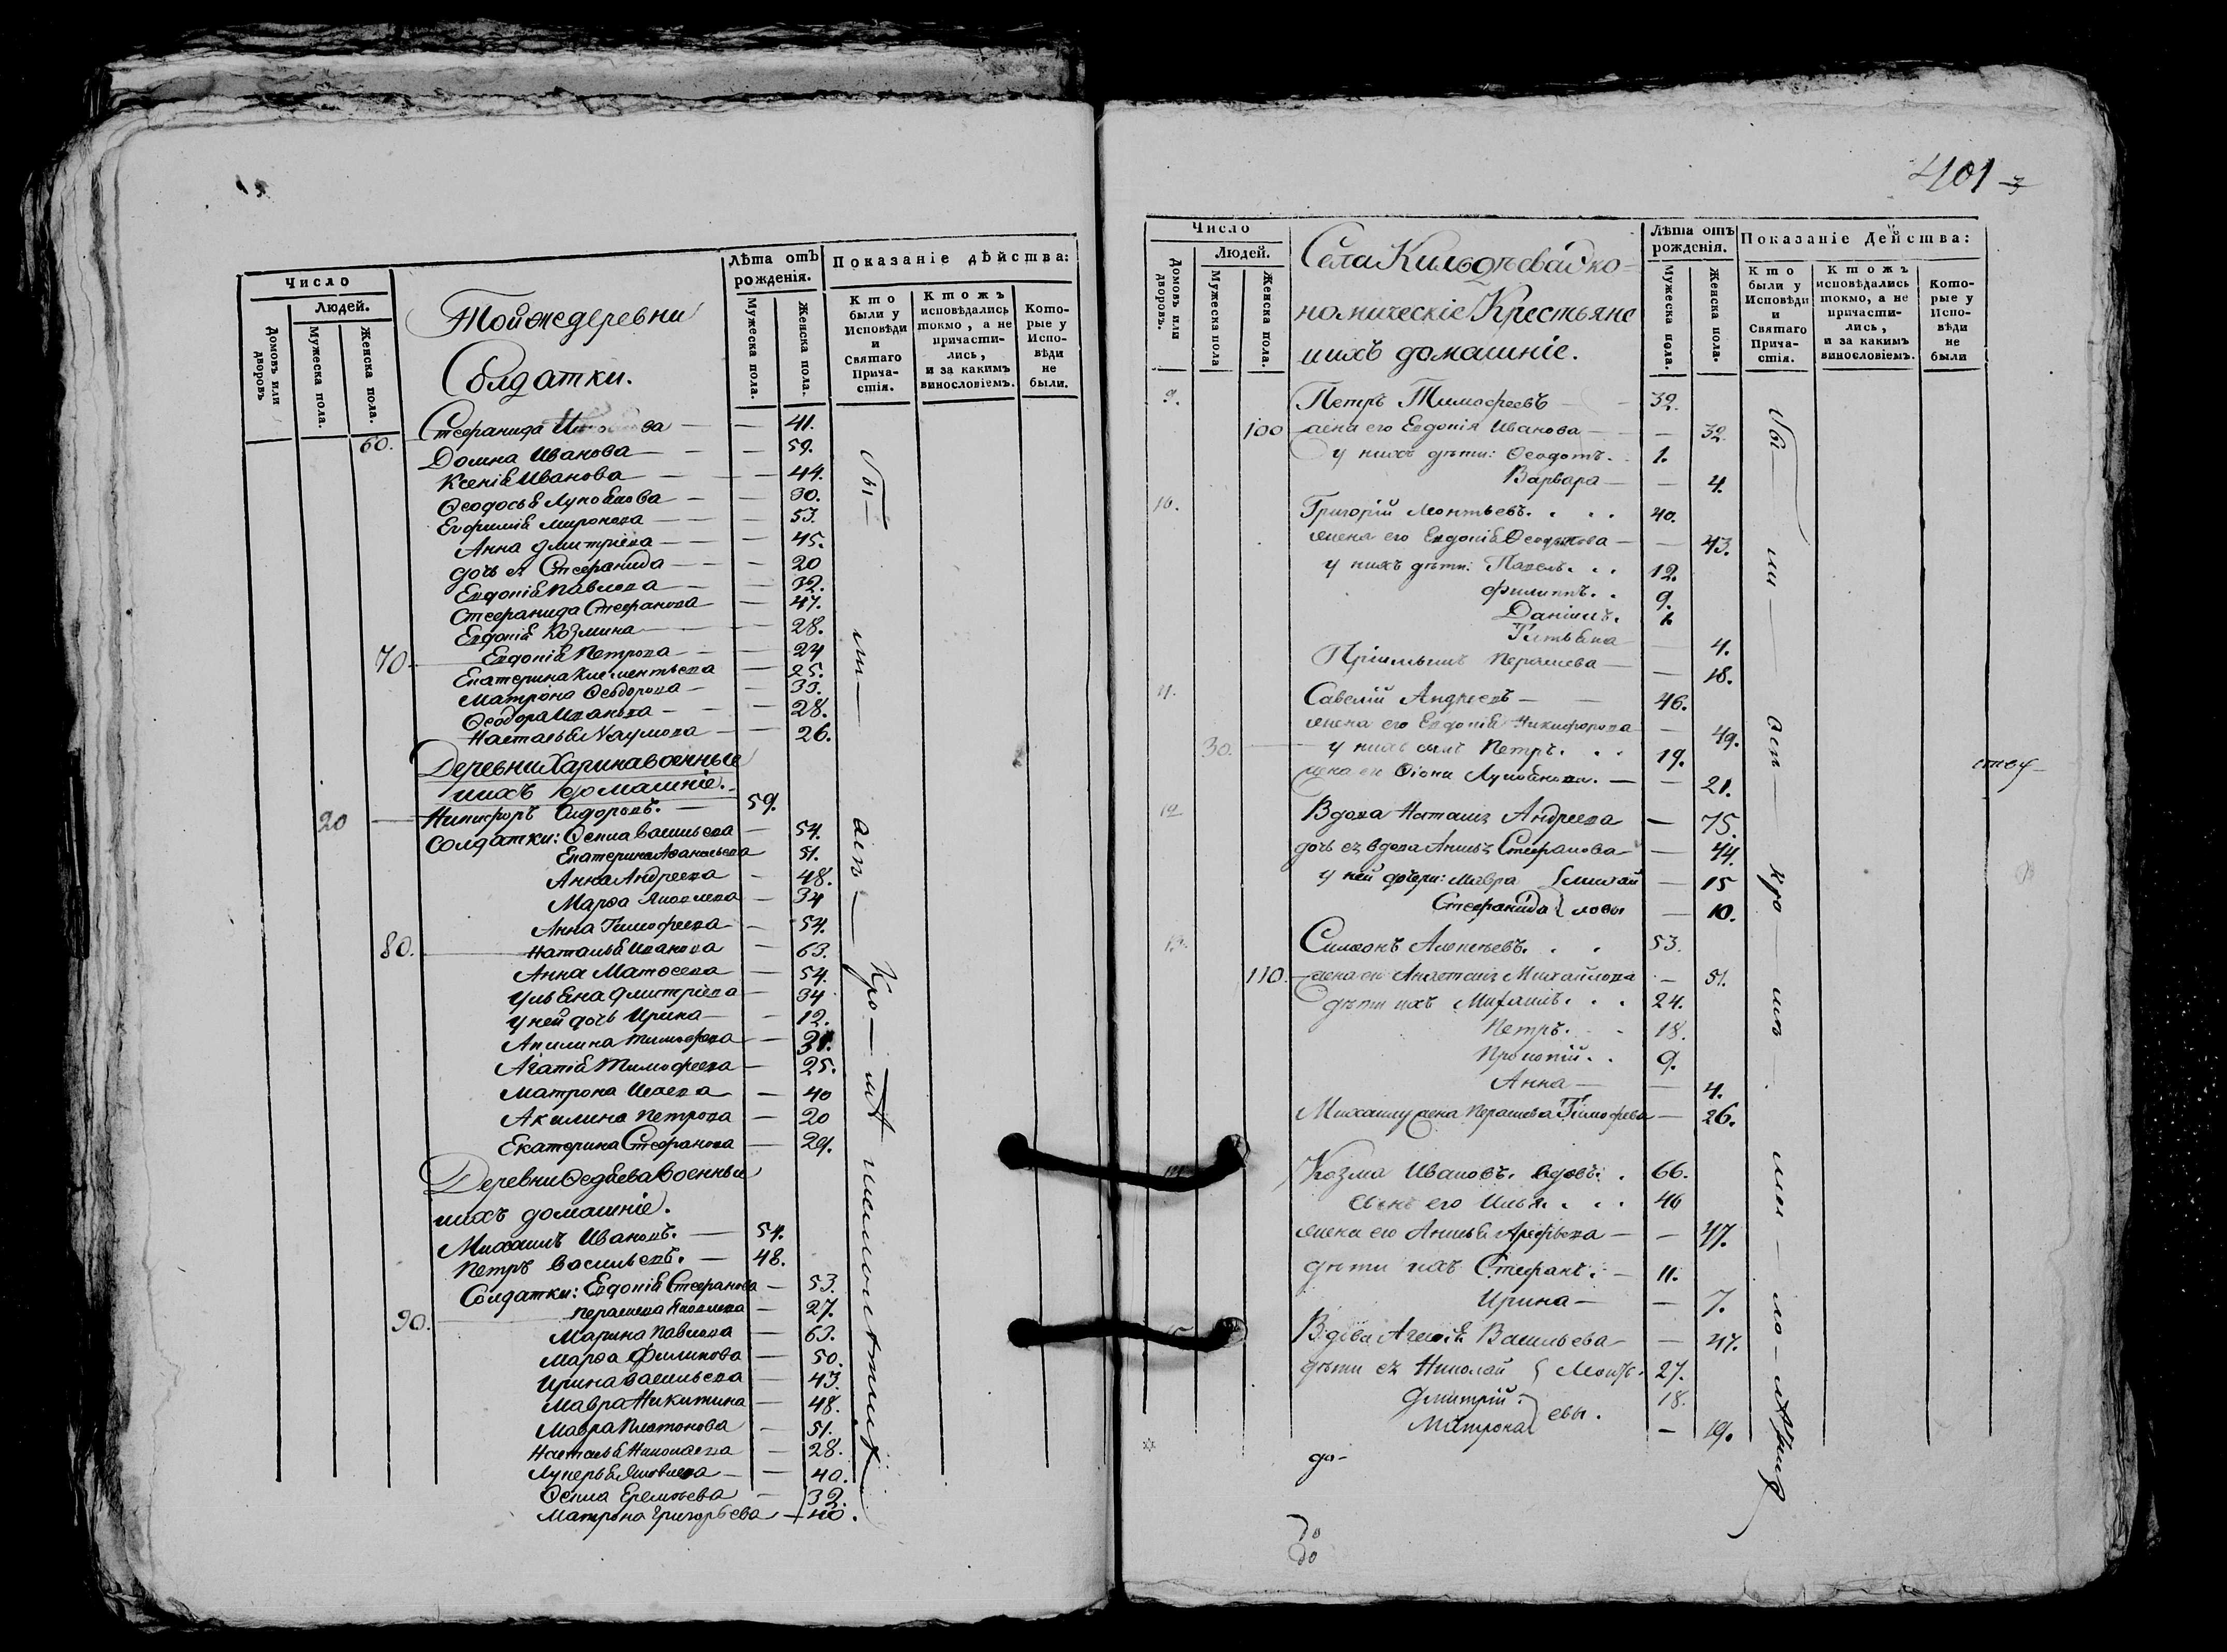 Число
Людей.
Домовъ или дворовъ
Мужеска пола.
Женска пола.
Тойжедеревни
Солдатки.
Лѣта отъ рожденія.
Мужеска пола.
Женска пола.
Показаніе дѣйства:
Кто были у Исповѣди и Святаго Прича-стія.
Ктожъ исповѣдались токмо, а не причасти-лись, и за какимъ винословіемъ.
Кото-рые у Испо-вѣди не были.
Стефанида — — 41.
60. Домна Иванова — — 59.
Ксенія Иванова — — 44.
Ѳеодосья — — 30.
Евфимія Миронова — — 53.
Анна Дмитріева — — 45.
дочь ея Стефанида — — 20
Евдокія Павлова — — 32.
Стефанида Стефанова — 47.
Евдокія Козмина — — 28.
70. Евдокія Петрова — — 24
Екатерина Климентьева — 25.
Матрона Ѳеодорова — — 33.
Ѳеодора Иванова — — 28.
Наталья Наумова — — 26.
Деревни Харина военные
ихъ домашніе.
20 — Никифоръ Сидоровъ. — 59.
Солдатки: Васильева — 54.
Екатерина Аѳанасьева 51.
Анна Андреева — 48.
Марѳа Яковлева — 34
Анна Тимофеева — 54.
80. Наталья Иванова — 63.
Анна Матѳеева — 54.
Ульяна Дмитріева — 34
у ней дочь Ирина — 12.
Акилина Тимофеева — 31.
Агапія Тимофеева — 25.
Матрона Исаева — 40
Акилина Петрова — 20
Екатерина Стефанова — 29.
Деревни военные
ихъ домашніе.
Михаилъ Ивановъ. — 54.
Петръ Васильевъ. — 48.
Солдатки: Евдокія Стефанова — 53.
90. Яковлева — 27.
Марина Павлова — 63.
Марѳа Филипова — 50.
Ирина Васильева — 43.
Мавра Никитина — 48.
Мавра Платонова — 51.
Наталья Николаева — 28.
Лукерья Яковлева — 40.
Еремѣева — 32.
Матрона Григорьева — 40.
401
Число
Людей.
Домовъ или дворовъ.
Мужеска пола
Женска пола.
номическіе Крестьяне
ихъ домашніе.
Лѣта отъ рожденія.
Мужеска пола.
Женска пола.
Показаніе Дѣйства:
Кто были у Исповѣди и Святаго Прича-стія.
Ктожъ исповѣдались токмо, а не причасти-лись, и за какимъ винословіемъ.
Кото-рые у Испо-вѣди не были
9. Петръ Тимофеевъ — 32.
100 жена его Евдокія Иванова — — 32.
у нихъ дѣти: Ѳеодотъ. 1.
Варвара — — 4.
10. Григорій Леонтьевъ. . . . 40.
жена его Евдокія — — 43.
у нихъ дѣти: Павелъ. . . 12.
Филиппъ. . 9.
Даніилъ. 1.
Татьяна — 4.
— 18.
11. Савелій Андреевъ — — 46.
жена его Евдокія Никифорова — 49.
30. у нихъ сынъ Петръ. . . 19.
жена ево — — 21.
12 Вдова Андреева — 75.
дочь ея вдова Стефанова — — 44.
у ней дочери: Мавра — 15
Стефанида — 10.
13. Симеонъ . . 53.
110. жена ево Михайлова — 51.
дѣти ихъ Михаилъ. . . 24.
Петръ. . 18.
Прокопій. . 9.
Анна — — 4.
жена Тимофеева — 26.
14 Козма Ивановъ. вдовъ. . 66.
сынъ его Илья. . . . 46
жена его — — 47.
дѣти ихъ Стефанъ. — 11.
Ирина — — 7.
15 Вдова Васильева — — 47.
дѣти ея Николай 27.
Дмитрій. 18.
Матрона евы. — 19.
до-